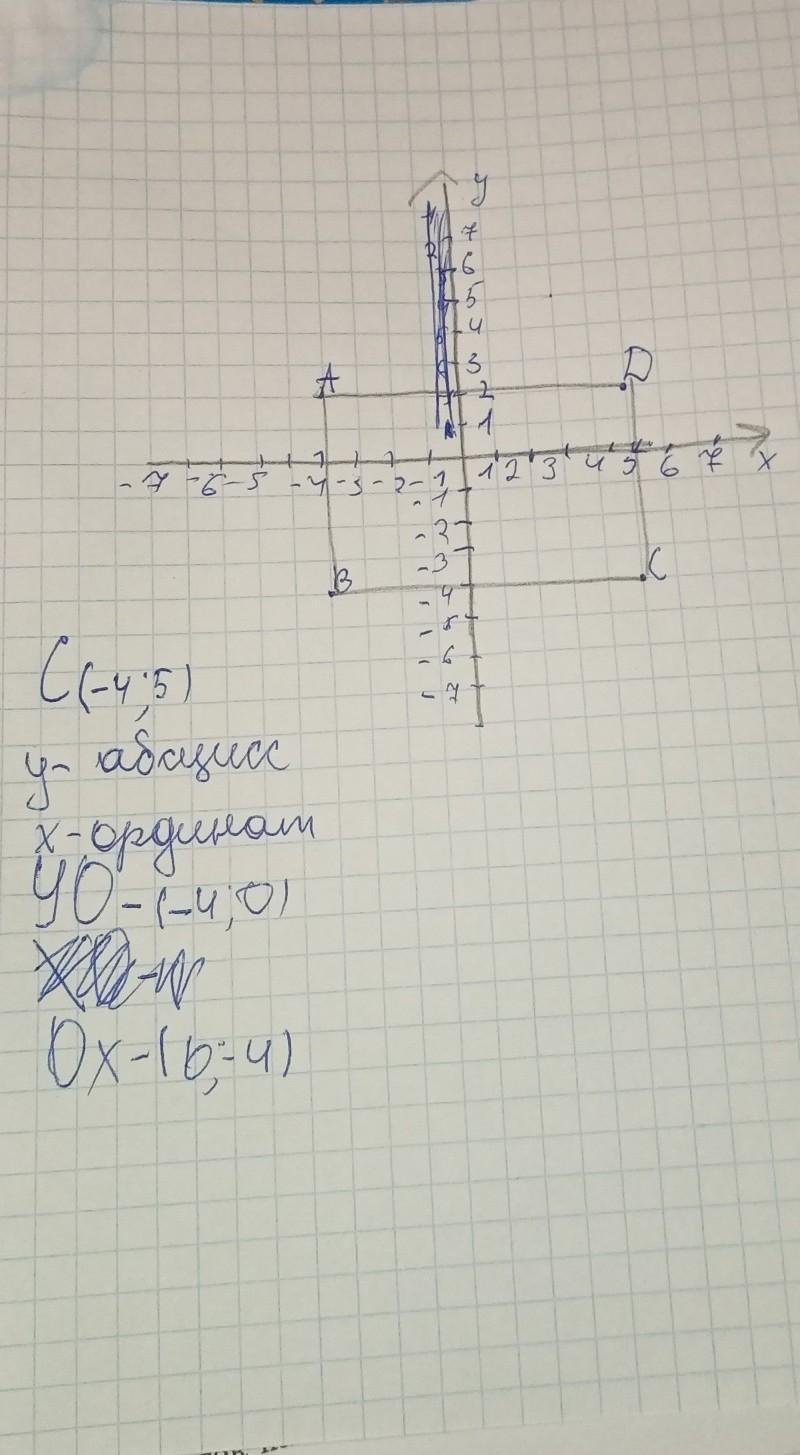 y
7
6
5
4
3
A 2 D
1
-7 -6 -5 -4 -3 -2 -1 1 2 3 4 5 6 7 x
-1
-2
-3
B -4 C
-5
-6
-7
C(-4;5)
y- абсцисс
x-ординат
УО-(-4;0)
Ox-(0;-4)